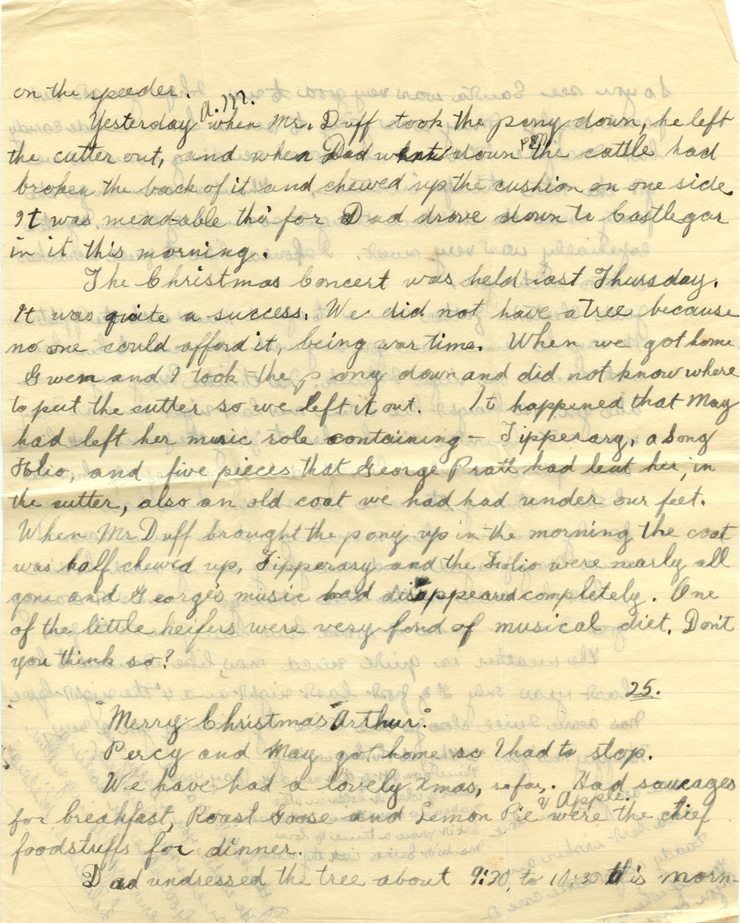 on the speeder.
Yesterday a.m. when Mr. Duff took the pony down, he left
the cutter out, and when Dad went down the cattle had
broken the back of it and chewed up the cushion on one side.
It was mend-able tho for Dad drove down to Castlegar
in it this morning.
The Christmas Concert was held last Thursday.
It was quite a success. We did not have a tree because
no one could afford it, being war time. When we got home
Gwen and I took the pony down and did not know where
to put the cutter so we left it out. It happened that May
had left her music role containing - Tipperary, a Song
Folio, and five pieces that George Pratt had leut her, in
the cutter, also an old coat we had had under our feet.
When Mr Duff brought the pony up in the morning the coat
was half chewed up, Tipperary and the Folio were nearly all
gone and George's music had disappeared completely. One
of the little heifers were very fond of musical diet. Don't
you think so?
25.
"Merry Christmas Arthur."
Percy and May got home so I had to stop.
We have had a lovely Xmas, so far. Had saucages
for breakfast, Roast Goose and Lemon Pie & Apple were the chief
foodstuffs for dinner.
Dad undressed the tree about 9:30 to 10:30 this morn-